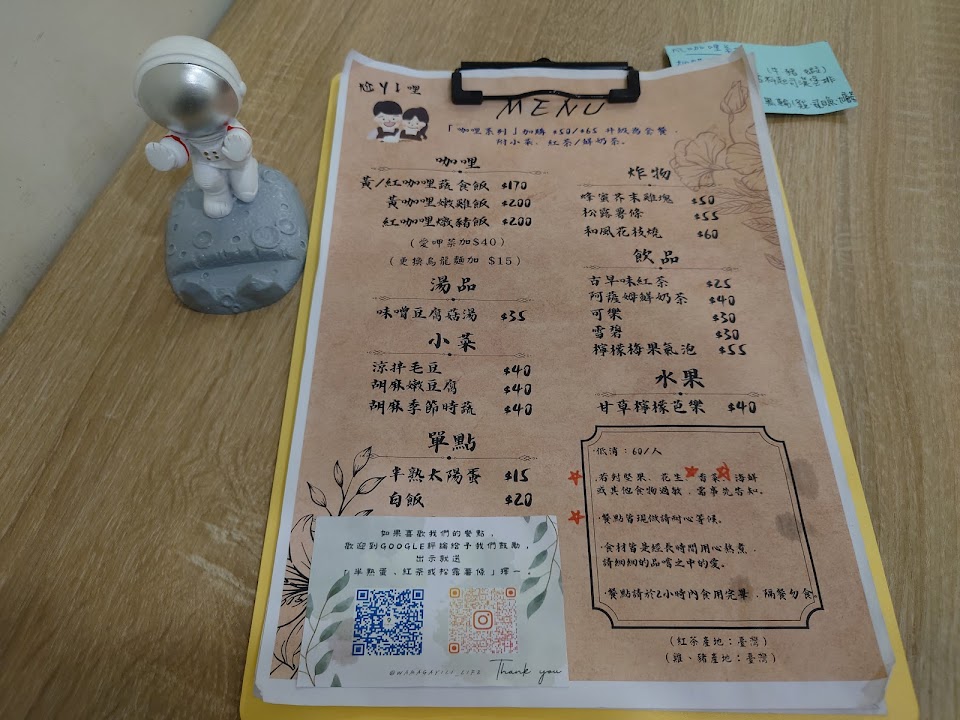 MENU
「咖哩系列」加購 $50/$65 升級為套餐，
附小菜、紅茶/鮮奶茶。
咖哩
黃/紅咖哩蔬食飯 $170
黃咖哩嫩雞飯 $200
紅咖哩燉豬飯 $200
(愛呷菜加$40)
(更換烏龍麵加 $15)
湯品
味噌豆腐菇湯 $35
小菜
涼拌毛豆 $40
胡麻嫩豆腐 $40
胡麻季節時蔬 $40
單點
半熟太陽蛋 $15
白飯 $20
炸物
蜂蜜芥末雞塊 $50
松露薯條 $55
和風花枝燒 $60
飲品
古早味紅茶 $25
阿薩姆鮮奶茶 $40
可樂 $30
雪碧 $30
檸檬梅果氣泡 $55
水果
甘草檸檬芭樂 $40
·低消：60/人
·若對堅果、花生、香菜、海鮮
或其他食物過敏，需事先告知。
·餐點皆現做請耐心等候。
·食材皆是經長時間用心熬煮，
請細細的品嚐之中的愛。
·餐點請於2小時內食用完畢，隔餐勿食。
(紅茶產地：臺灣)
(雞、豬產地：臺灣)
如果喜歡我們的餐點，
歡迎到GOOGLE評論給予我們鼓勵，
出示就送
「半熟蛋、紅茶或松露薯條」擇一。
@WAKAGAYILI_CIPZ
Thank you